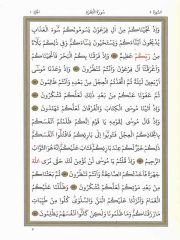 سُورَةُ الْبَقَرَةِ
وَإِذْ نَجَّيْنَاكُمْ مِنْ آلِ فِرْعَوْنَ يَسُومُونَكُمْ سُوءَ الْعَذَابِ
يُذَبِّحُونَ أَبْنَاءَكُمْ وَيَسْتَحْيُونَ نِسَاءَكُمْ وَفِي ذَلِكُمْ بَلَاءٌ
مِنْ رَبِّكُمْ عَظِيمٌ وَإِذْ فَرَقْنَا بِكُمُ الْبَحْرَ فَأَنْجَيْنَاكُمْ
وَأَغْرَقْنَا آلَ فِرْعَوْنَ وَأَنْتُمْ تَنْظُرُونَ وَإِذْ وَاعَدْنَا مُوسَى
أَرْبَعِينَ لَيْلَةً ثُمَّ اتَّخَذْتُمُ الْعِجْلَ مِنْ بَعْدِهِ وَأَنْتُمْ ظَالِمُونَ
ثُمَّ عَفَوْنَا عَنْكُمْ مِنْ بَعْدِ ذَلِكَ لَعَلَّكُمْ تَشْكُرُونَ وَإِذْ
آتَيْنَا مُوسَى الْكِتَابَ وَالْفُرْقَانَ لَعَلَّكُمْ تَهْتَدُونَ
وَإِذْ قَالَ مُوسَى لِقَوْمِهِ يَا قَوْمِ إِنَّكُمْ ظَلَمْتُمْ أَنْفُسَكُمْ
بِاتِّخَاذِكُمُ الْعِجْلَ فَتُوبُوا إِلَى بَارِئِكُمْ فَاقْتُلُوا أَنْفُسَكُمْ
ذَلِكُمْ خَيْرٌ لَكُمْ عِنْدَ بَارِئِكُمْ فَتَابَ عَلَيْكُمْ إِنَّهُ هُوَ التَّوَّابُ
الرَّحِيمُ وَإِذْ قُلْتُمْ يَا مُوسَى لَنْ نُؤْمِنَ لَكَ حَتَّى نَرَى اللَّهَ
جَهْرَةً فَأَخَذَتْكُمُ الصَّاعِقَةُ وَأَنْتُمْ تَنْظُرُونَ ثُمَّ بَعَثْنَاكُمْ
مِنْ بَعْدِ مَوْتِكُمْ لَعَلَّكُمْ تَشْكُرُونَ وَظَلَّلْنَا عَلَيْكُمُ
الْغَمَامَ وَأَنْزَلْنَا عَلَيْكُمُ الْمَنَّ وَالسَّلْوَى كُلُوا مِنْ طَيِّبَاتِ
مَا رَزَقْنَاكُمْ وَمَا ظَلَمُونَا وَلَكِنْ كَانُوا أَنْفُسَهُمْ يَظْلِمُونَ